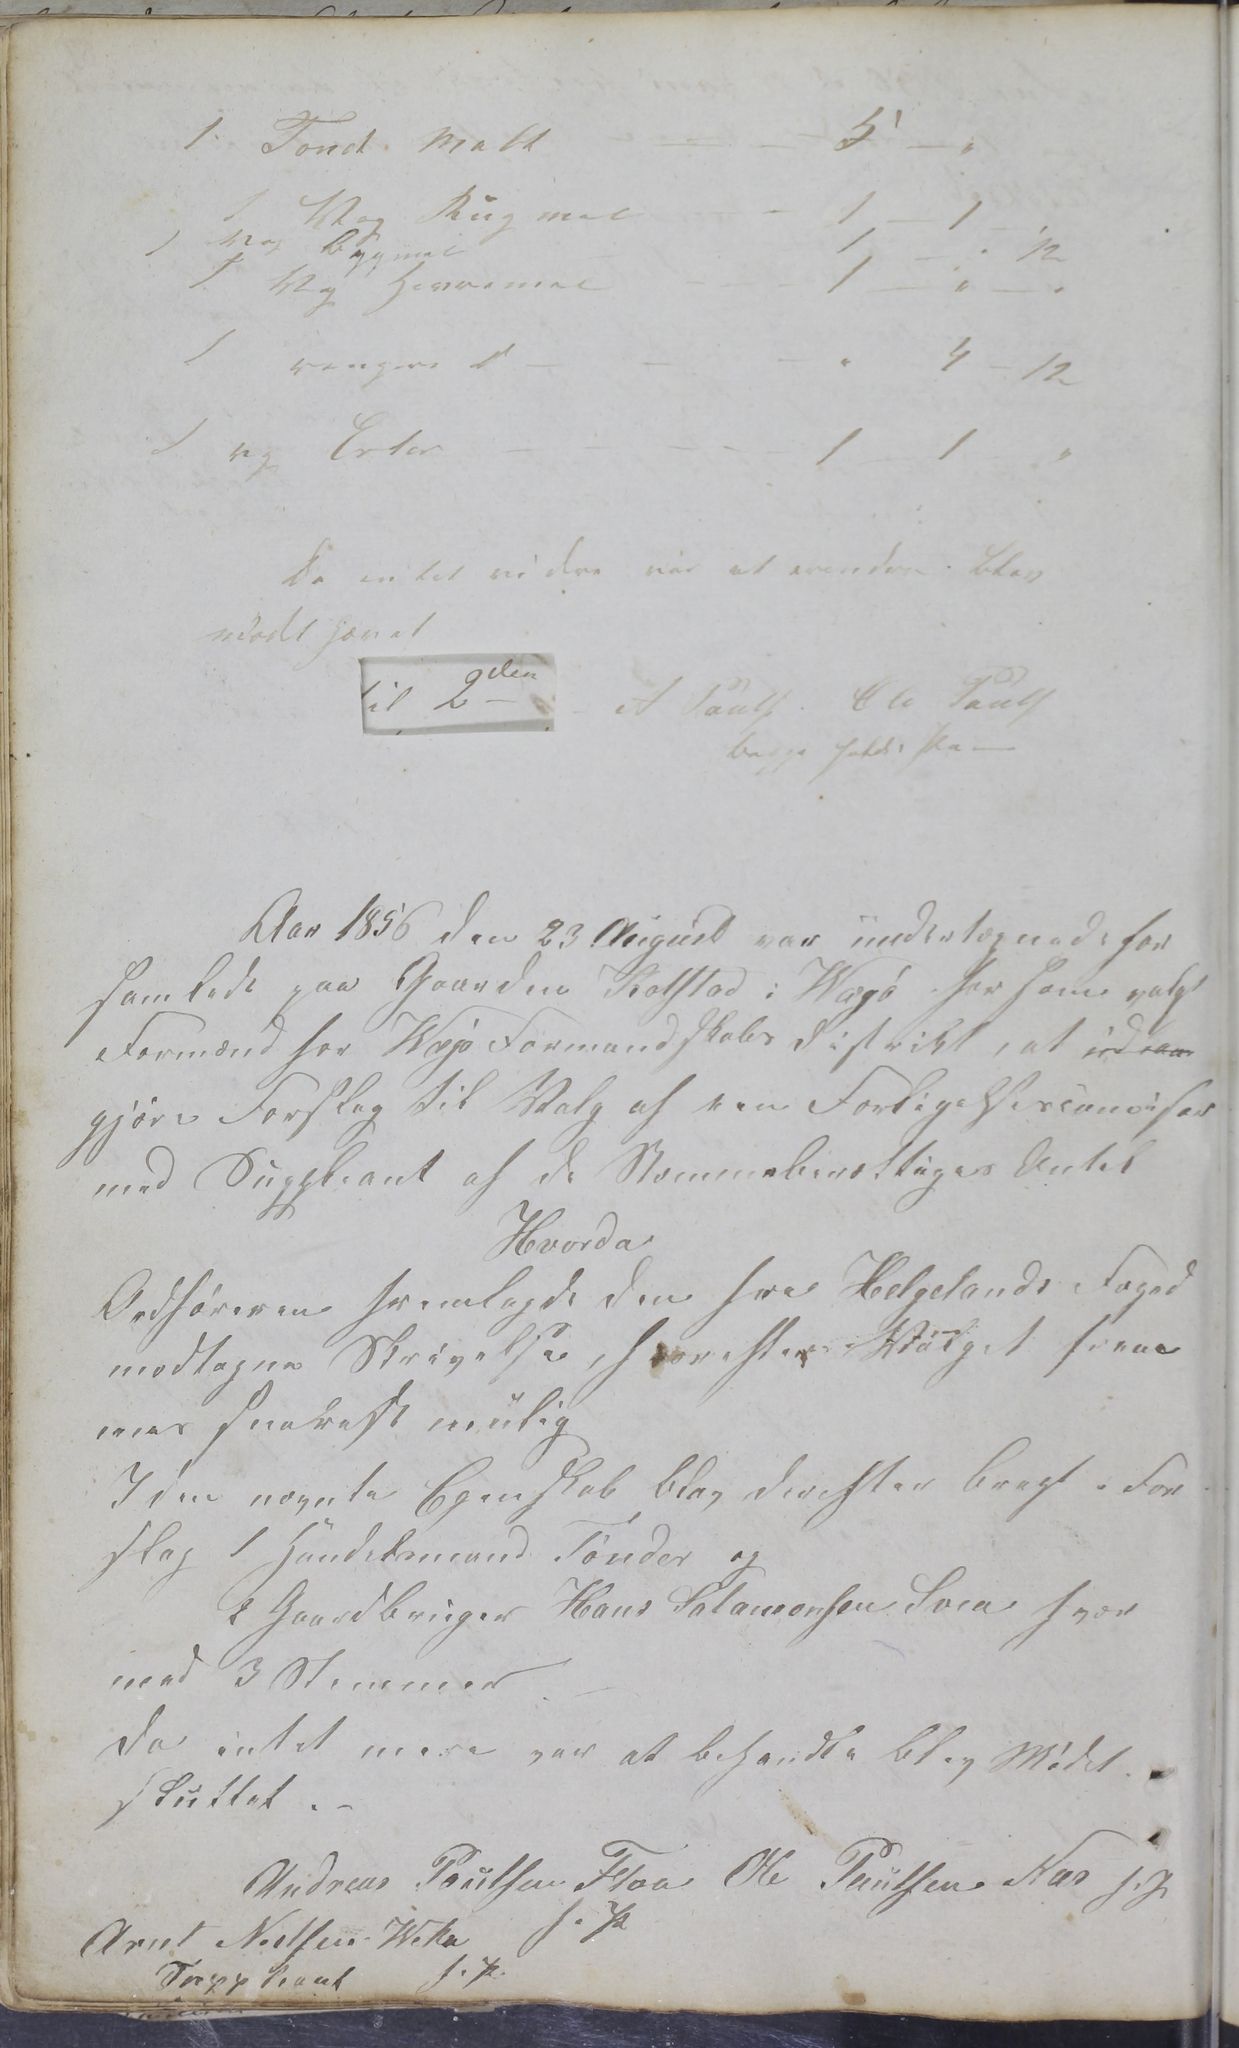 1. Tønd. Malt — — — 5 — "
1 Vog Rugmel — — 1 — 1 — "
1 Vog Bygmel — 1 — " 12
1 Vog Havremel — — — 1 — " — "
1 ringere d — — — " 4 — 12
1 vg Erter — — — — 1 — 1 — "
Da intet videre var at erindre blev
mødt hævet
til 2den
A Pauls. Ole Pauls
begge
Aar 1856 den 23 August var undertegnede for
samlede paa Gaarden Kolstad i Wægø for som valgt
Formænd for Wægø Formandskabs distrikt, at
gjøre Forslag til Valg af een Forligelsescomisær
med Suppleant af de Stemmeberettiges Antal
Hvorda
Ordføreren fremlagde den fra Helgelands Foged
modtagne Skrivelse, hvorefter Valget frem
mes snarest mulig
I den nævnte Egenskab blev derefter bragt i For
slag 1 Handelsmand Tønder og
2 Gaardbruger Hans Salamonsen Sven hver
med 3 Stemmer —
da intet mere var at behandle blev Mødet
sluttet. —
Andreas Paulsen Floa Ole Paulsen Nas f. P
Arnt Nielsen Wika f. P
Suppleant f. P.